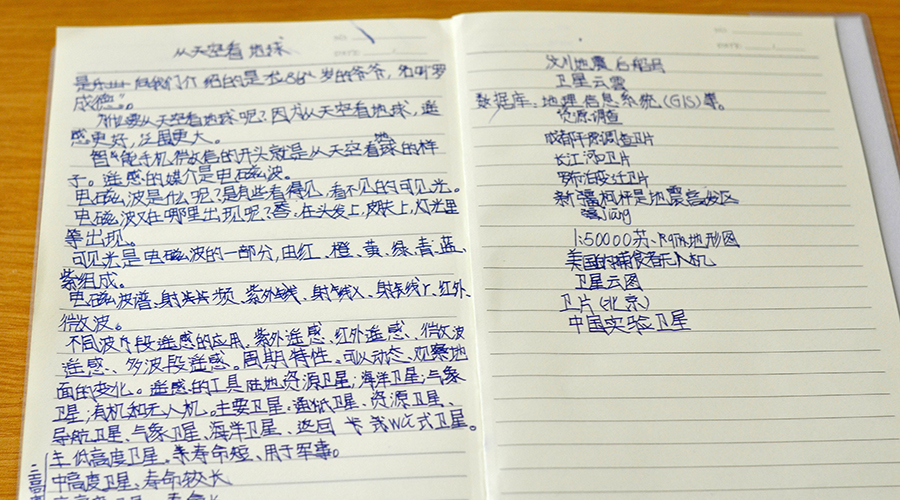 从天空看地球
NO.
DATE
是乐 启我们介绍的是戈86岁的爷爷，名叫罗
成德。
为什么要从天空看地球呢？因为从天空看地球，遥
感更好，泛围更大。
智能手机微信的开头就是从天空看地球的样
子。遥感的媒介是电磁波。
电磁波是什么呢？是有些看得见，看不见的可见光。
电磁波又在哪里出现呢？答，在头发上，皮肤上，灯光里
等出现。
可见光是电磁波的一部分，由红、橙、黄、绿、青、蓝、
紫组成。
电磁波谱、射 频、紫外线、射线X、射线r、红外、
微波。
不同波段遥感的应用。紫外遥感、红外遥感、微波
遥感、多波段遥感。周期特性。可以动态、观察地
面的变化。遥感的工具陆地资源卫星；海洋卫星；气象
卫星；有机和无人机。主要卫星。通低卫星、资源卫星、
导航卫星、气象卫星、海洋卫星、返回 式卫星。
低高度卫星。寿命短、用于军事。
中高度卫星、寿命较长
NO.
DATE
汶川地震后
卫星云雪
数据库、地理信息系统(GIS)等。
资源调查
成都平原调查卫片
长江河口卫片
罗布泊变迁卫片
新疆柯枰是地震高发区
jiāng
1:50000 地形图
美国的捕食者无人机
卫星云图
卫片(北京)
中国实验卫星